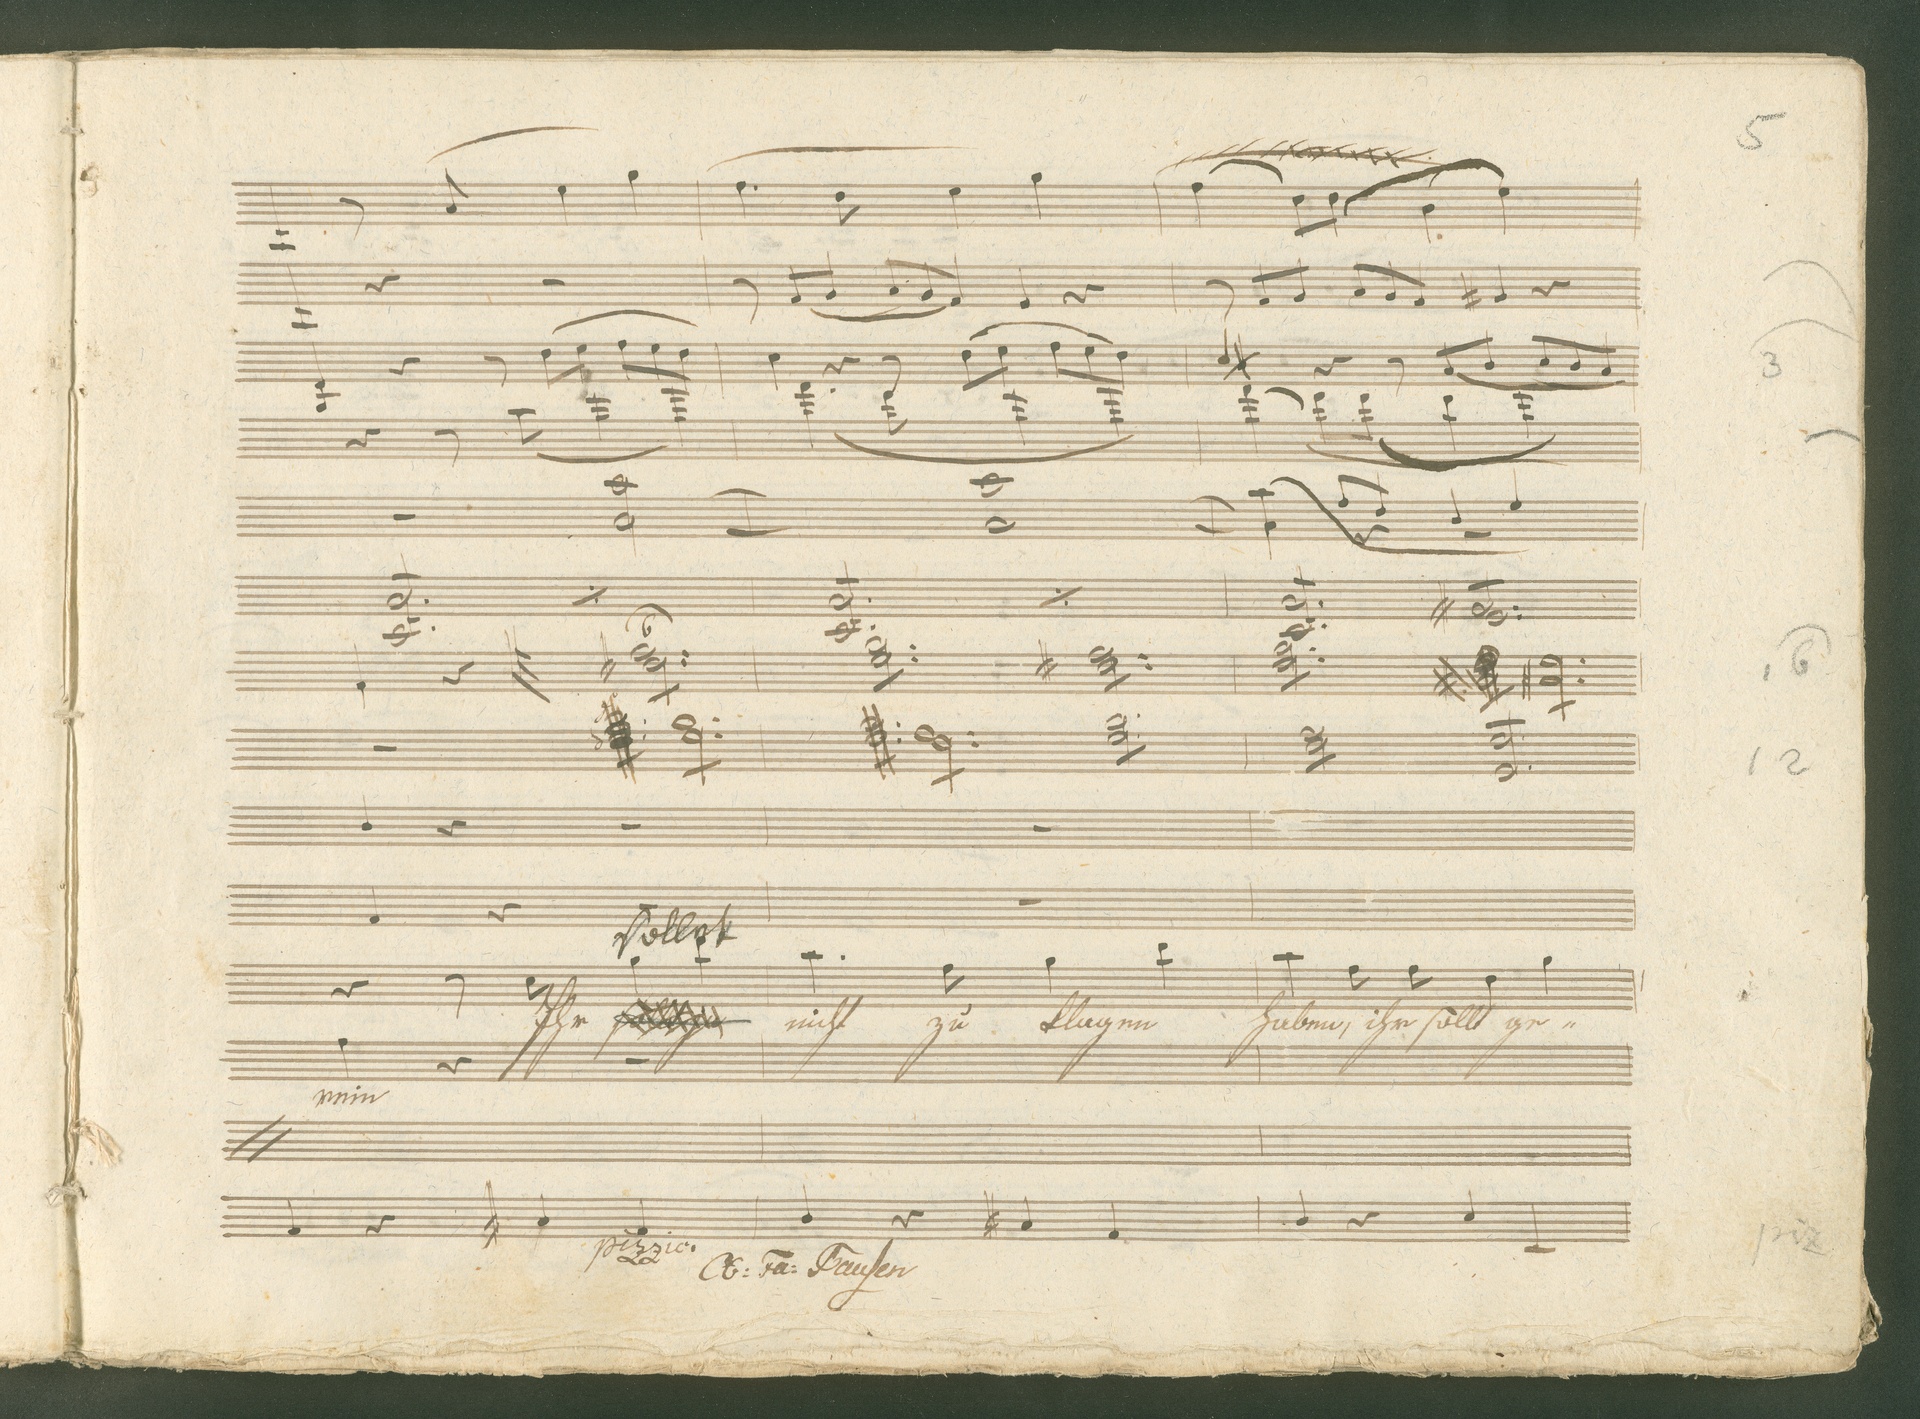 5
3
, 6
12
Sollet
Ihr nicht zu klagen haben, ihr sollt ge=
nein
pizzic.
piz